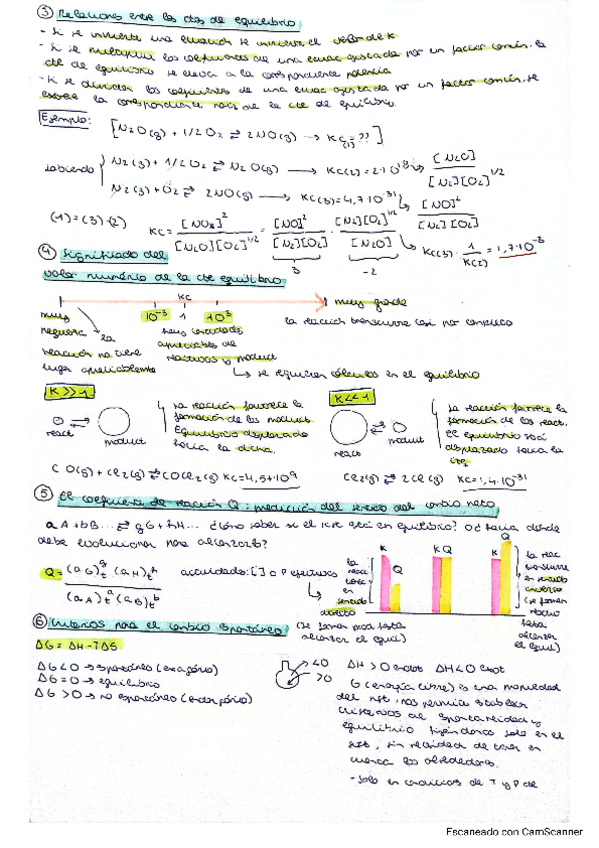 ③ Relaciones entre las ctes de equilibrio
- Si se invierte una ecuación se invierte el valor de K
- Si se multiplican los coeficientes de una ecuac ajustada por un factor común, la
cte de equilibrio se eleva a la correspondiente potencia
- Si se dividen los coeficientes de una ecuac ajustada por un factor común, se
la correspondiente raíz de la cte de equilibrio.
Ejemplo: [N2O(g) + 1/2 O2 ⇄ 2NO(g) → KC(1) = ??]
sabiendo
N2(g) + 1/2 O2 ⇄ N2O(g) → KC(2) = 2·10 [N2O] / [N2][O2]^1/2
N2(g) + O2 ⇄ 2NO(g) → KC(3) = 4,7·10^-31 [NO]^2 / [N2][O2]
(1) = (3) - (2) KC = / [N2O][O2]^1/2 = [NO]^2 / [N2][O2] · [N2][O2]^1/2 / [N2O]
3 -2 KC(3) · 1/K(2) = 1,7·10^-3
④ Significado del
valor numérico de la cte equilibrio
KC
10^-3 1 10^3 muy grande
muy
pequeña la
reacción no tiene
lugar apreciablemente
hay cantidades
apreciables de
reactivos y product
la reacción transcurre casi por completo
se requieren cálculos en el equilibrio
K >> 1
react product
La reacción favorece la
formación de los product
Equilibrio desplazado
hacia la dcha.
K << 1
react product
La reacción favorece la
formación de los react.
El equilibrio está
desplazado hacia la
izq
CO(g) + Cl2(g) ⇄ COCl2(g) KC = 4,5·10^9
Cl2(g) ⇄ 2Cl(g) KC = 1,4·10^-31
⑤ El coeficiente de reacción Q: predicción del sentido del cambio neto
aA + bB... ⇄ gG + hH... ¿Cómo saber si el está en equilibrio? O ¿hacia dónde
debe evolucionar para alcanzarlo?
Q = (aG)^g t (aH)^h t / (aA)^a t (aB)^b t
actividades: [ ] o P efectivas
la
reacc
en
sentido
directo
(se forman prod hasta
alcanzar el equil)
K Q
K Q
K Q
la reac
en sentido
inverso
(se forman
reactiv
hasta
alcanzar
el equil)
⑥ Criterios para el cambio espontáneo
ΔG = ΔH - TΔS
ΔG < 0 → espontáneo (exergónico)
ΔG = 0 → equilibrio
ΔG > 0 → no espontáneo (endergónico)
<0
>0
ΔH > 0 endot ΔH < 0 exot
G (energía libre) es una propiedad
del sist, nos permite establecer
criterios de espontaneidad y
equilibrio fijándonos solo en el
sist, sin necesidad de tener en
cuenta los alrededores.
- Solo en condiciones de T y P de
Escaneado con CamScanner